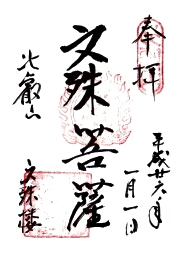 奉拝
平成廿六年
一月一日
文殊菩薩
比叡山
文殊楼